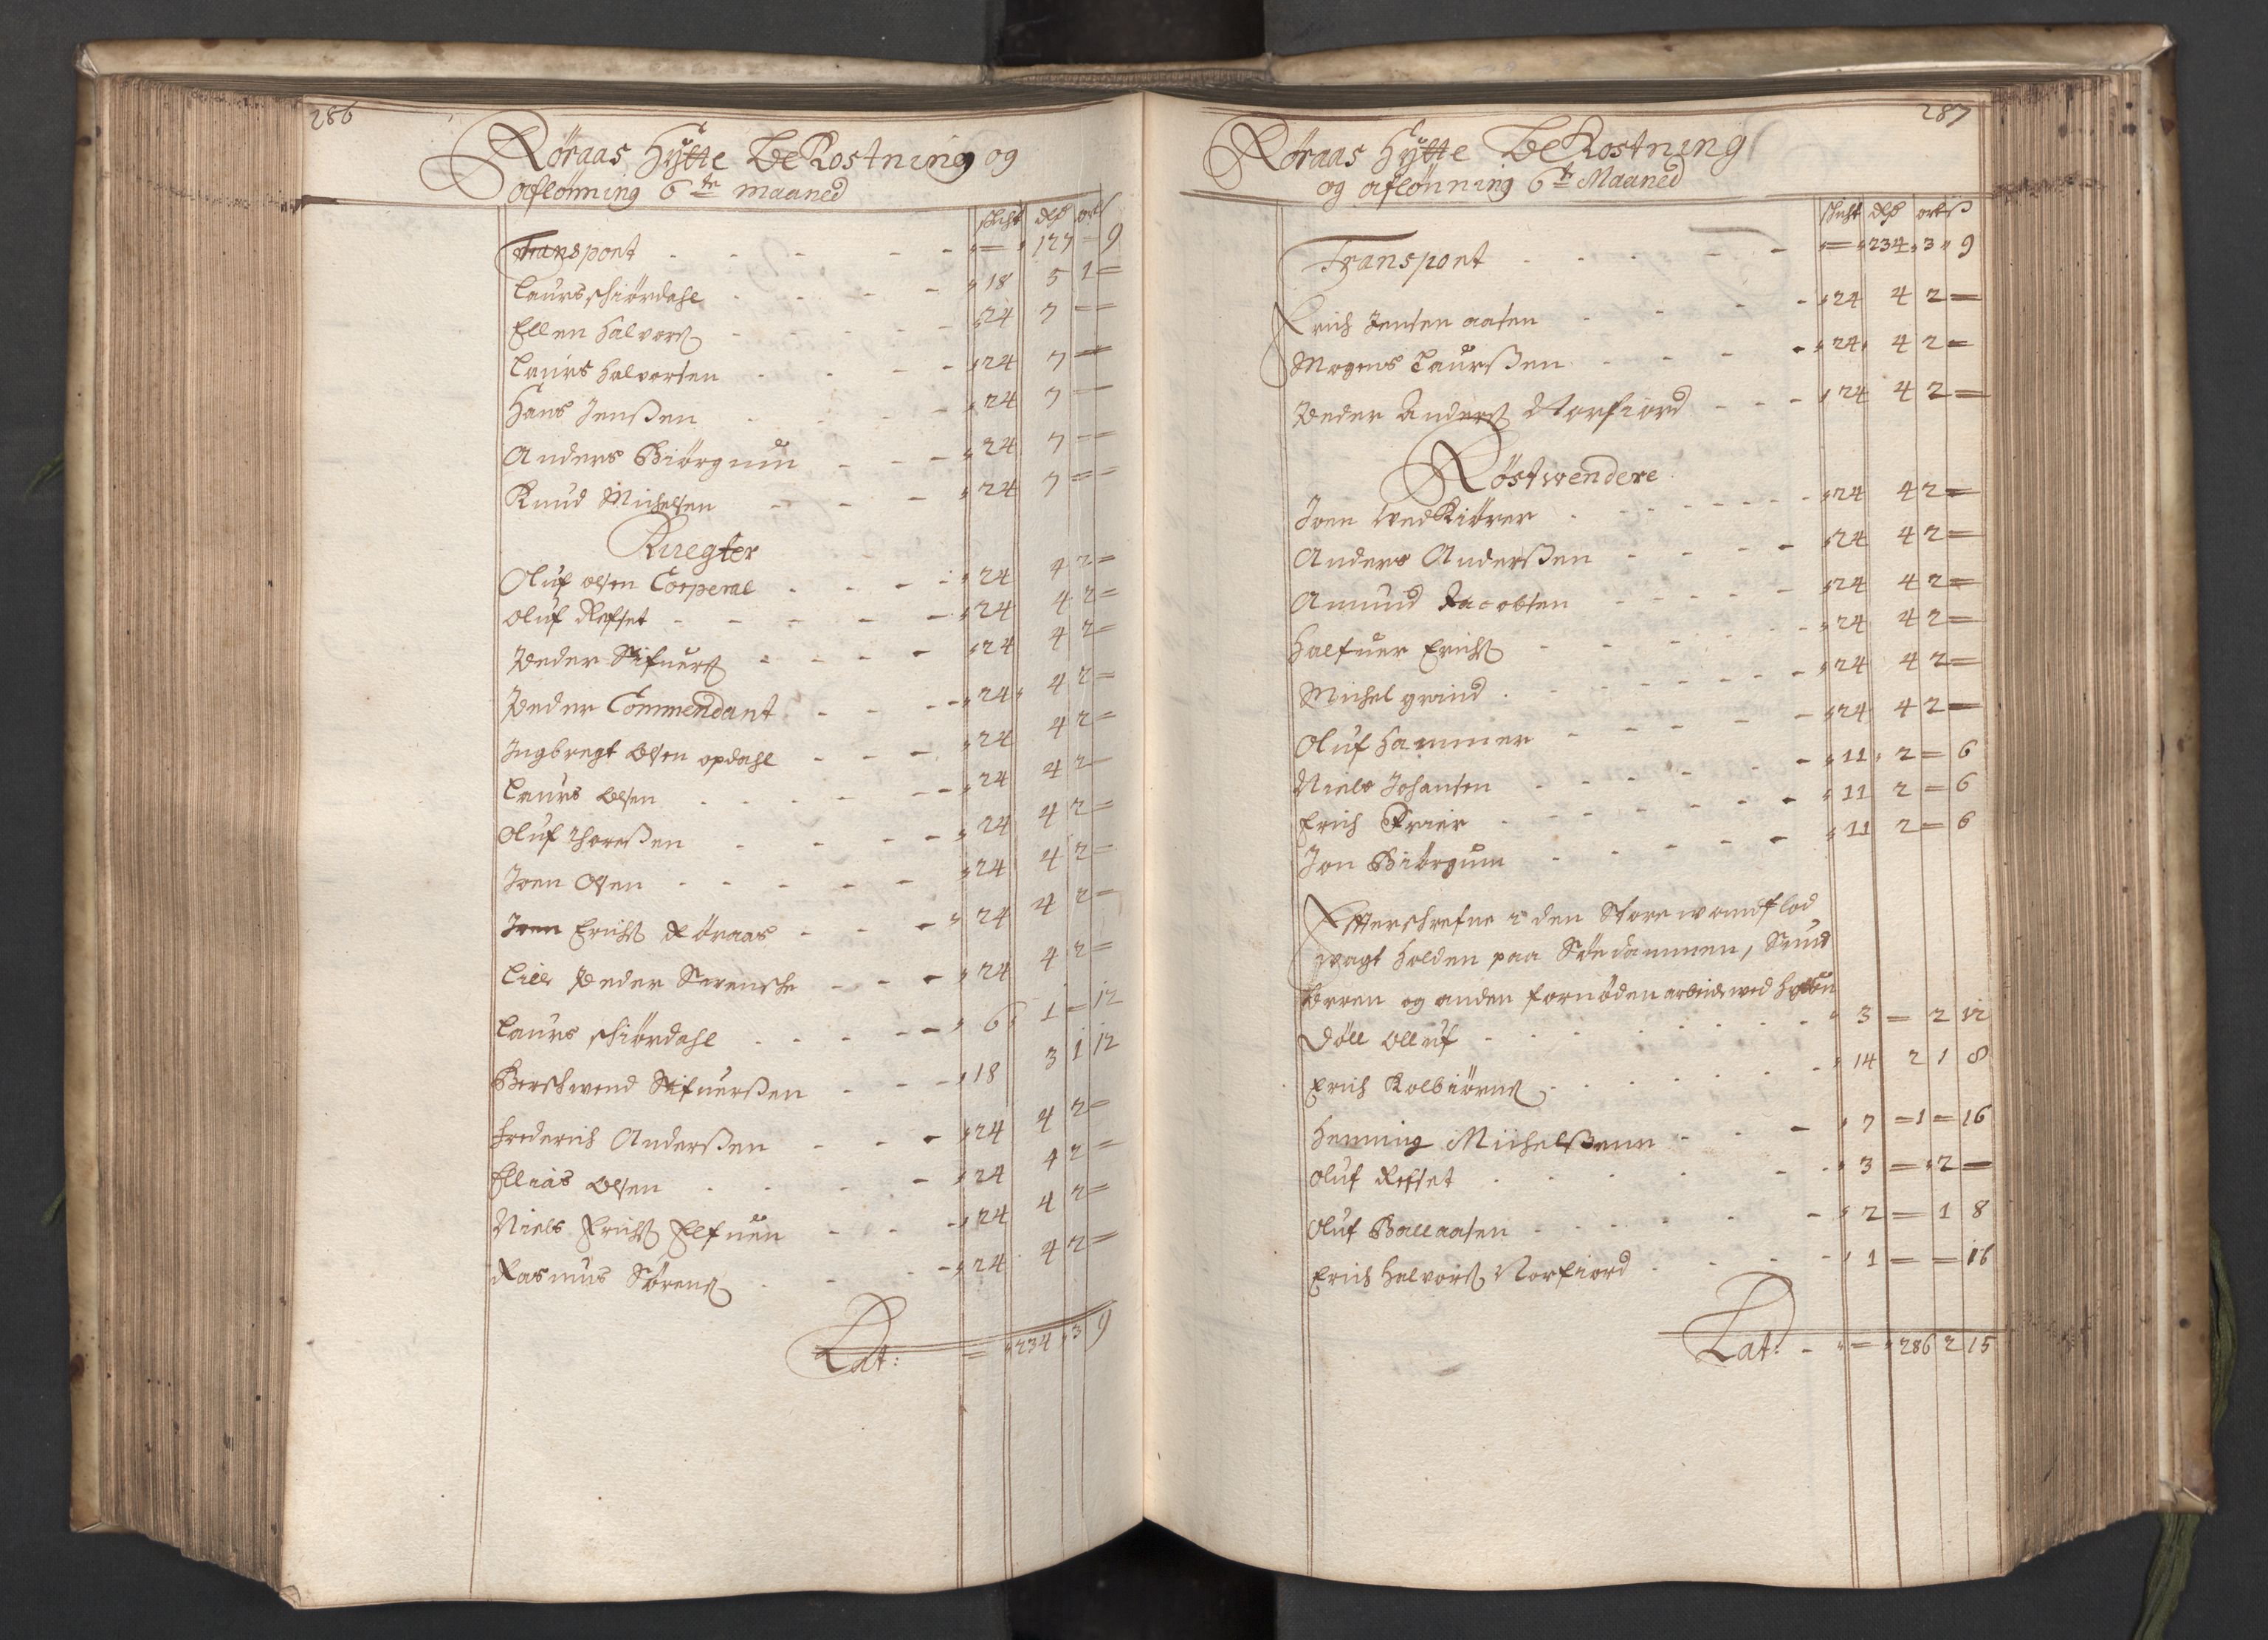 286
Röraas Hÿtte beKostning og
aflönning 6te maaned
schicht dlr ort ß
Transport - - - - - = 127 - 9
Laurs schiördahl - - - - 18 5 1 =
Ellen Halvors - - - - 24 7 = =
Laurs Halvorsen - - - - 24 7 = =
Hans Jenßen - - - 24 7 = =
Anders Biörgum - - - 24 7 = =
Knud Michelsen - - - 24 7 = =
Knegter
Oluf olsen Corperal - - - - 24 4 2 =
oluf Refset - - - - - 24 4 2 =
Peder Sifuers - - - - 24 4 2 =
Peder Commendant - - - - 24 4 2 =
Ingbregt olsen opdahl - - - 24 4 2 =
Laurs olsen - - - - - 24 4 2 =
Oluf Thoreßen - - - - 24 4 2 =
Joen Olsen - - - - - 24 4 2 =
Joen Erichs Röraas - - - 24 4 2 =
Lille Peder Svenske - - - 24 4 2 =
Laurs schiördahl - - - - - 6 1 = 12
Berschwend Sifuerßen - - - 18 3 1 12
Frederich Anderßen - - - 24 4 2 =
Ellias olsen - - - - 24 4 2 =
Niels Erichs Elfuen - - - 24 4 2 =
Rasmus Sörens - - - - 24 4 2 =
Lat: = 234 3 9
287
Röraas Hÿtte beKostning
og aflönning 6te Maaned
schicht dlr ort ß
Transport - - - - - = 234 3 9
Erich Jensen aasen - - - - 24 4 2 =
Mogens Laurßen - - - - 24 4 2 =
Peder Anders Norfiord - - - 24 4 2 =
Röstwendere
Joen wedKiörer - - - - - - 24 4 2 =
Anders Anderßen - - - - 24 4 2 =
Amund Jacobsen - - - - - 24 4 2 =
Halfuer Erichs - - - - - - 24 4 2 =
Michel grind - - - - - - - 24 4 2 =
Oluf Hammer - - - - - 24 4 2 =
Niels Johansen - - - - - - 11 2 = 6
Erich - - - - - - 11 2 = 6
Jon Biörgum - - - - - 11 2 = 6
Efterschrefne i den Store wandflod
wagt holden paa Söedammen,
og anden fornöden arbeide wed hytten
Döll olluf - - - - - - - 3 = 2 12
Erich Kolbiörns - - - - - - 14 2 1 8
Henning Michelßenn - - - 7 = 1 = 16
oluf Refset - - - - - 3 = 2 =
Oluf Ballaasen - - - - - 2 = 1 8
Erich Halvors Norfiord - - - - 1 = = 16
Lat: - = 286 2 15